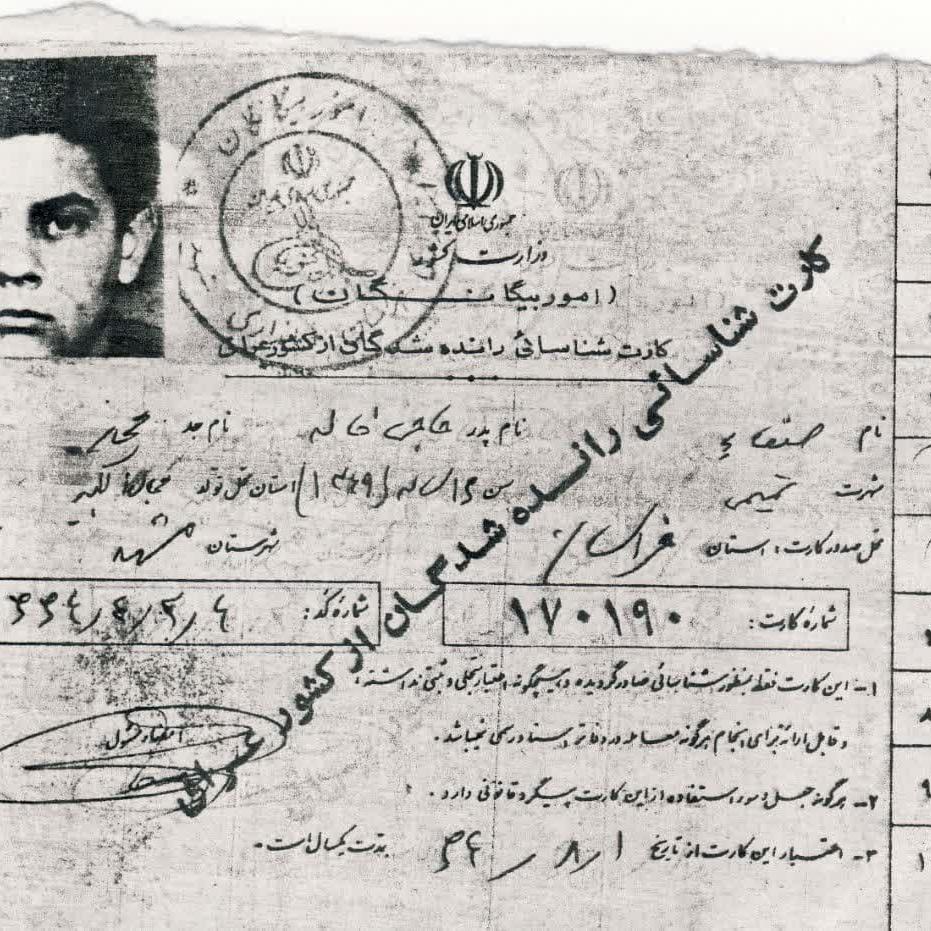 امور بیگانگان
جمهوری اسلامی ایران
وزارت کشور
(امور بیگانگان)
کارت شناسائی رانده شدگان از کشور عراق
کارت شناسائی رانده شدگان از کشور عراق
نام صنعاء نام پدر حاجی نام جد
شهرت تمیمی سن ۱۶ ساله (۱۳۴۹) استان محل تولد
محل صدور کارت: استان خراسان شهرستان مشهد
شماره کارت: ۱۷۰۱۹۰
شماره کد:
۱- این کارت فقط بمنظور شناسائی صادر گردیده و هیچگونه اعتبار سجلی و ثبتی نداشته
و قابل ارائه برای انجام هرگونه معامله در دفاتر اسناد رسمی نمیباشد.
۲- هرگونه جعل و سوء استفاده از این کارت پیگرد قانونی دارد.
۳- اعتبار این کارت از تاریخ ۱/۸/۶۴ بمدت یکسال است.